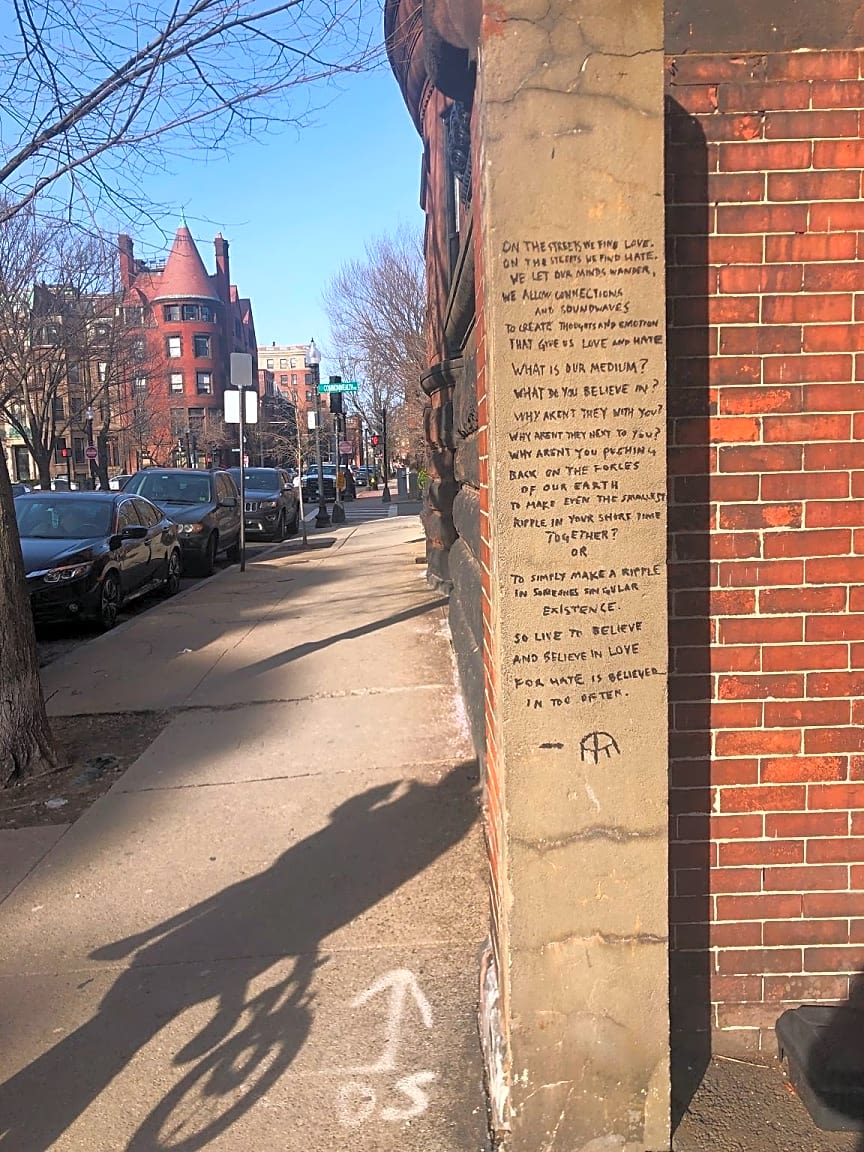 COMMONWEALTH
ON THE STREETS WE FIND LOVE.
ON THE STREETS WE FIND HATE.
WE LET OUR MINDS WANDER,
WE ALLOW CONNECTIONS
AND SOUNDWAVES
TO CREATE THOUGHTS AND EMOTION
THAT GIVE US LOVE AND HATE
WHAT IS OUR MEDIUM?
WHAT DO YOU BELIEVE IN?
WHY AREN'T THEY WITH YOU?
WHY ARENT THEY NEXT TO YOU?
WHY ARENT YOU PUSHING
BACK ON THE FORCES
OF OUR EARTH
TO MAKE EVEN THE SMALLEST
RIPPLE IN YOUR SHORT TIME
TOGETHER?
OR
TO SIMPLY MAKE A RIPPLE
IN SOMEONES SINGULAR
EXISTENCE.
SO LIVE TO BELIEVE
AND BELIEVE IN LOVE
FOR HATE IS BELIEVED
IN TOO OFTEN.
DS